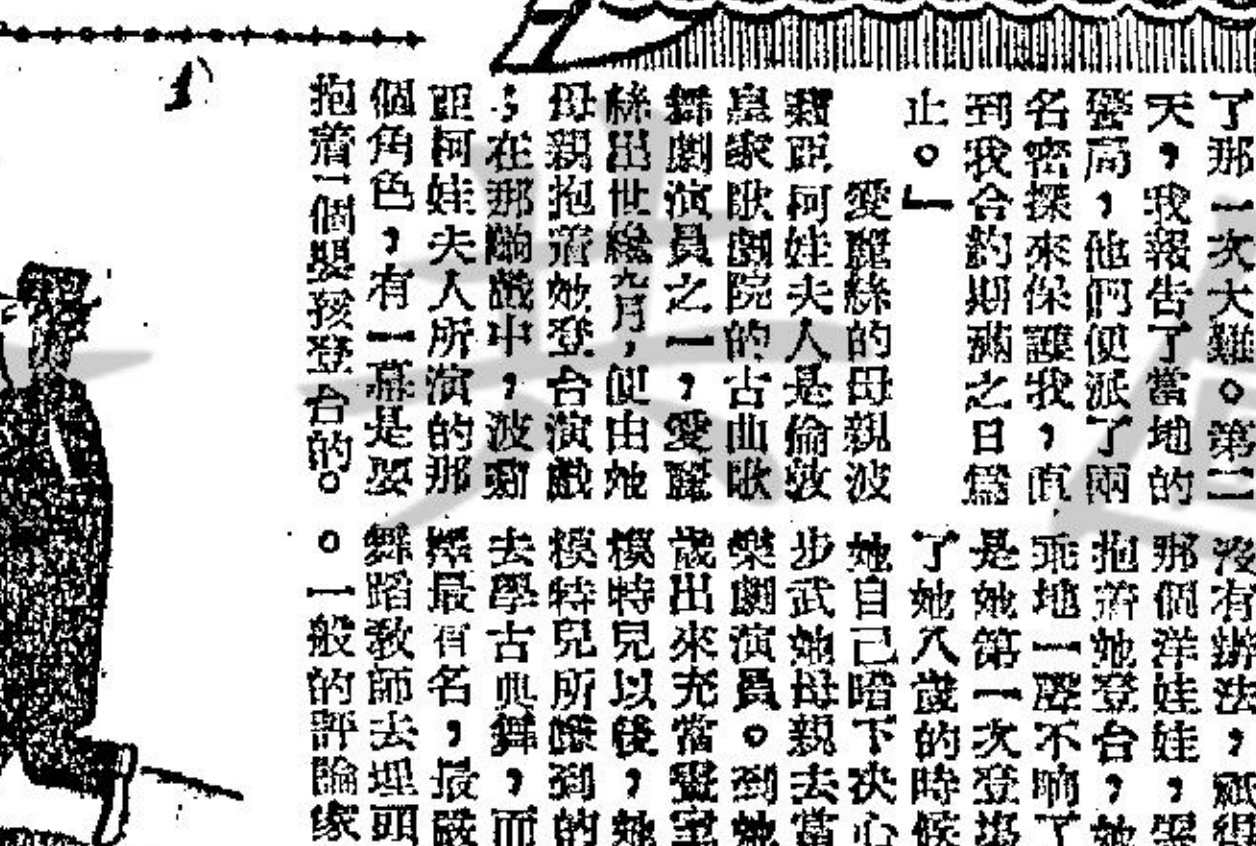 了那一次大難。第二
天，我報告了當地的
警局，他們便派了兩
名密探來保護我，直
到我合約期滿之日爲
止。」
愛麗絲的母親波
薾距柯娃夫人是倫敦
皇家歌劇院的古曲歌
舞劇演員之一，愛麗
絲出世纔九月，便由她
母親抱着她登台演戲
；在那齣戲中，波薾
距柯娃夫人所演的那
個角色，有一幕是要
抱着一個嬰孩登台的。
沒有辦法，祗得
那個洋娃娃，
抱着她登台，她
乖地一聲不响了
是她第一次登塲
了她八歲的時候
她自己暗下决心
步武她母親去當
樂劇演員。到她
歲出來充當
模特兒以後，她
模特兒所賺到的
去學古典舞，而
擇最有名，最嚴
舞蹈教師去埋頭
。一般的評論家